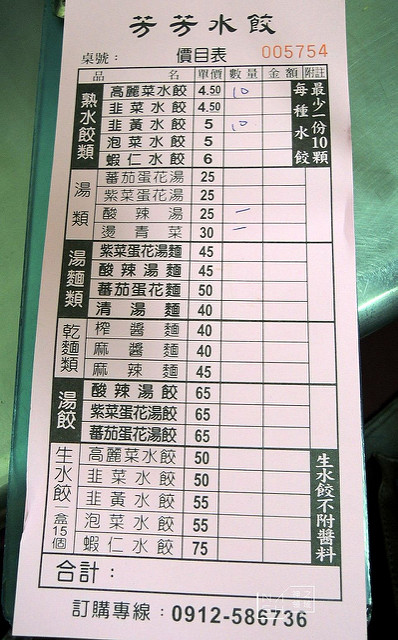 芳芳水餃
桌號： 價目表 005754
品名 單價 數量 金額 附註
熟水餃類
高麗菜水餃 4.50 10
韭菜水餃 4.50
韭黃水餃 5 10
泡菜水餃 5
蝦仁水餃 6
每種水餃最少一份10顆
湯類
蕃茄蛋花湯 25
紫菜蛋花湯 25
酸辣湯 25 一
燙青菜 30 一
湯麵類
紫菜蛋花湯麵 45
酸辣湯麵 45
蕃茄蛋花麵 50
清湯麵 40
乾麵類
榨醬麵 40
麻醬麵 40
麻辣麵 45
湯餃
酸辣湯餃 65
紫菜蛋花湯餃 65
蕃茄蛋花湯餃 65
生水餃 一盒15個
高麗菜水餃 50
韭菜水餃 50
韭黃水餃 55
泡菜水餃 55
蝦仁水餃 75
生水餃不附醬料
合計：
訂購專線：0912-586736